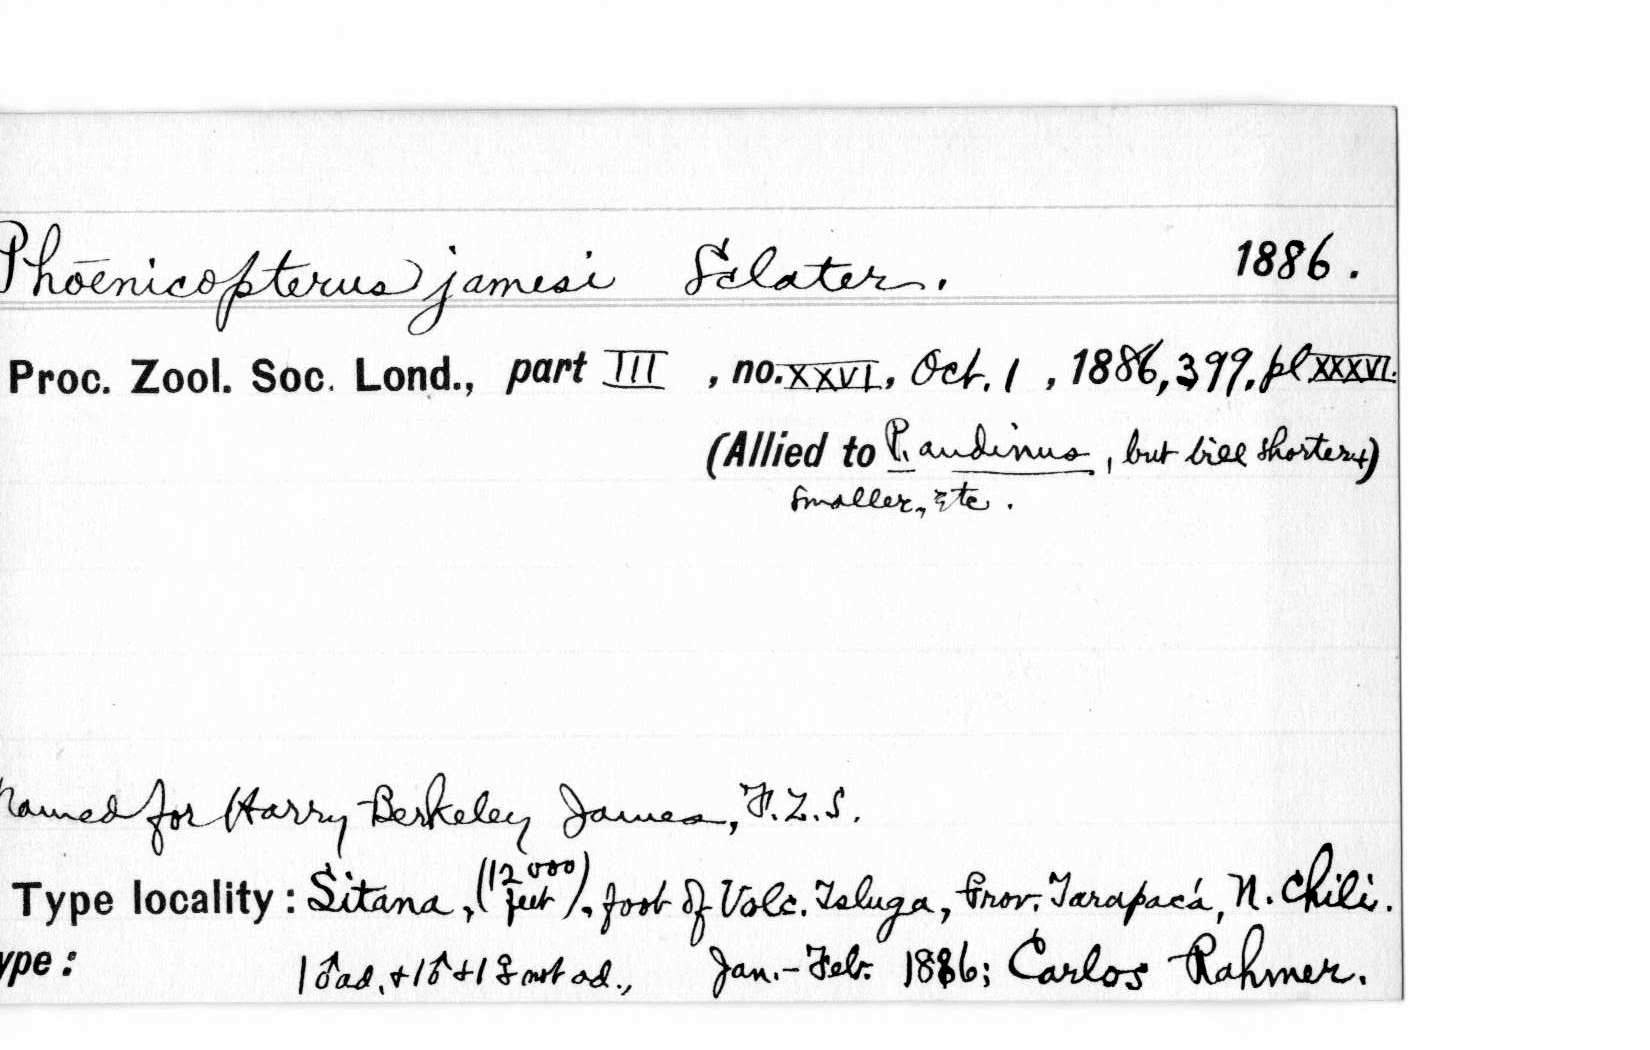 Phoenicopterus jamesi Sclater. 1886.
Proc. Zool. Soc. Lond., part III, no. XXVI, Oct. 1, 1886, 399. pl XXXVI.
(Allied to P. andinus, but bill shorter +)
smaller, etc.
Named for Harry Berkeley James, F.Z.S.
Type locality: Sitana, (12000 feet), foot of Volc. Isluga, Prov. Tarapacá, N. Chili.
ype: 1 ♂ ad. + 1 ♂ + 1 ♀ not ad., Jan.-Feb. 1886; Carlos Rahmer.